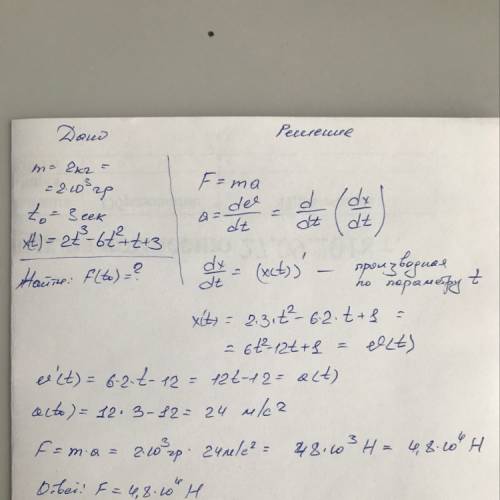 Дано
m = 2кг =
= 2·10³гр
t₀ = 3сек
x(t) = 2t³-6t²+t+3
Найти: F(t₀) = ?
Решение
F = ma
a = dv/dt = d/dt (dx/dt)
dx/dt = (x(t))' — производная по параметру t
x'(t) = 2·3·t²-6·2·t+1 =
= 6t²-12t+1 = v(t)
v'(t) = 6·2·t-12 = 12t-12 = a(t)
a(t₀) = 12·3-12 = 24 м/с²
F = m·a = 2·10³гр·24м/с² = 48·10³ Н = 4,8·10⁴ Н
Ответ: F = 4,8·10⁴ Н